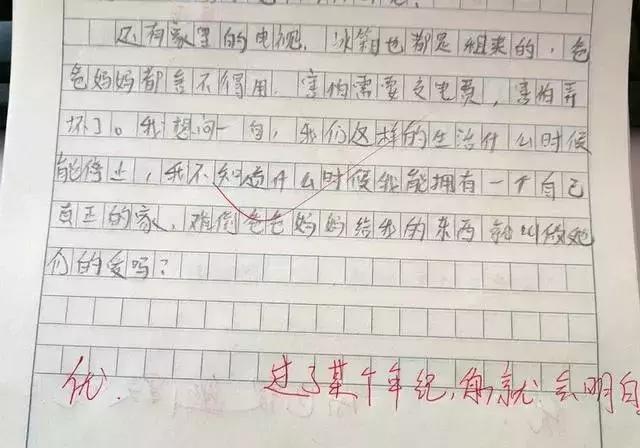 还有家里的电视，冰箱也都是租来的，爸
爸妈妈都舍不得用，害怕需要交电费，害怕弄
坏了。我想问一句，我们这样的生活什么时候
能停止，我不知道什么时候我能拥有一个自己
真正的家，难倒爸爸妈妈给我的东西就叫做她
们的爱吗？
优． 过了某个年纪，你就会明白